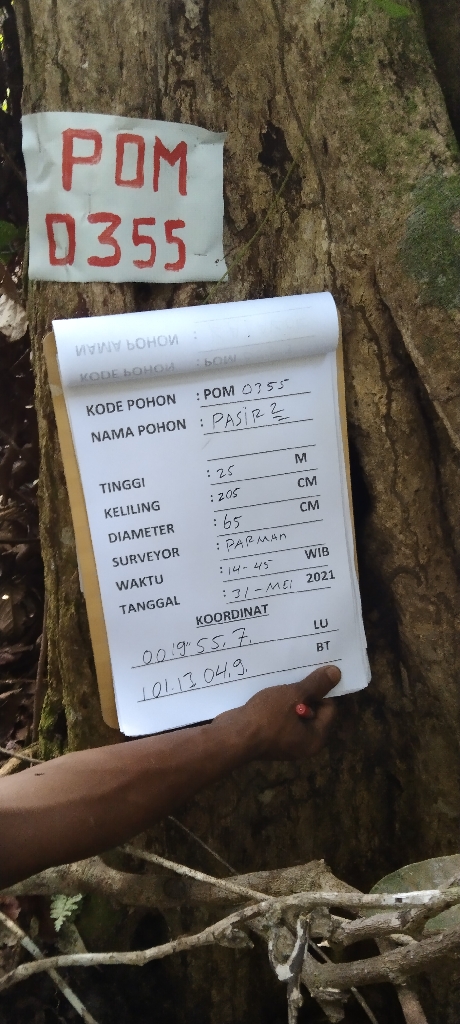 POM
0355
NAMA POHON :
KODE POHON : POM
KODE POHON : POM 0355
NAMA POHON : PASIR 2
TINGGI : 25 M
KELILING : 205 CM
DIAMETER : 65 CM
SURVEYOR : PARMAN
WAKTU : 14-45 WIB
TANGGAL : 31-MEI 2021
KOORDINAT
00 19" 55.7. LU
101.13 04.9. BT